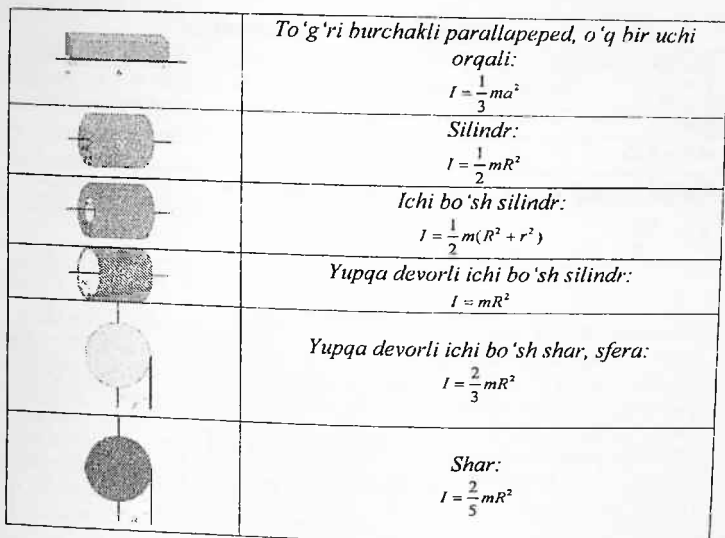 To‘g‘ri burchakli parallapeped, o‘q bir uchi
orqali:
I = 1/3 ma²
Silindr:
I = 1/2 mR²
Ichi bo‘sh silindr:
I = 1/2 m(R² + r²)
Yupqa devorli ichi bo‘sh silindr:
I = mR²
Yupqa devorli ichi bo‘sh shar, sfera:
I = 2/3 mR²
Shar:
I = 2/5 mR²